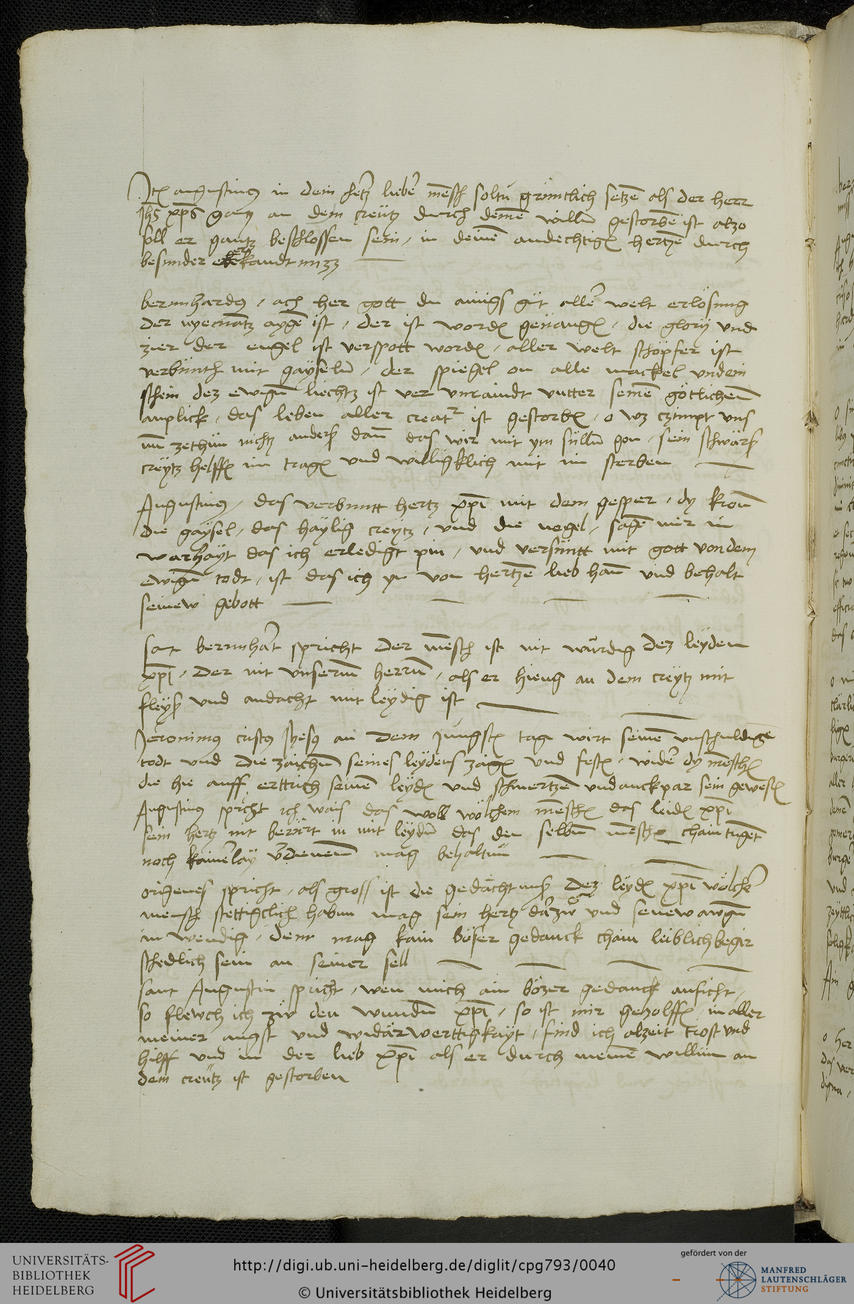 Itē augustinꝰ in dein hertz lieber mēsch soltu grüntlich setzē als der herr
Jhs xp̄s gantz an dem creütz durch deinē willū gestorbē ist alzo
soll er gantz beschlossen sein, in deinē andechtigē hertzē durch
besunder erkandtnüzz
bernnhardꝰ, ach her gott du ainigs güt aller welt erlösung
der nyemantz aygē ist, der ist wordē gefangē, die glory vnd
zier der engel ist verspott wordē, aller welt schöpfer ist
verbünth mit gayseln, der spiegel on alle mackel vnd ein
schein dez ewigen liechtz ist ver vnraindt vntter seinē götlichem
anplick, das leben aller creatr ist gestorbē, o wz czimpt vns
nu zethün nichtz anders dan das wir mit ym süllen gen, sein schwärs
creytz helffē im tragē vnd willigklich mit im sterben
Augustinꝰ, das verbuntt hertz xp̄i mit dem gesper, dy kron
die gaysel, das haylig creytz, vnd die negel, sagē mir in
warhayt das ich erledigt pin, vnd versüntt mit gott von dem
ewgē todt, ist das ich yn von hertzē lieb han vnd behalt
seinew gebott
sant bernnhart spricht der mēsch ist nit würdig dez leyden
xp̄i, der nit vnserm herrn, als er hieng an dem creytz mit
fleyß vnd andacht mit leydig ist
Jeronimus cristꝰ jhesꝰ an dem Jungstē tag wirt seinē vnschuldigē
todt vnd die zaichen seines leydens zaigē vnd fest, wider dy mēschē
die hie auff erttrich seinem leydē vnd schmertzē vndanckpar sein gewestē
Augustinus spricht ich wais das woll wölchem mēschē das leidē xp̄i
sein hertz nit berürt in mit leyden das dem selben mēschē chain tugēt
noch kainerlay v̈rdienen mag behaltum
origenes spricht, als gross ist die gedächtnuß dez leydē xp̄i wölcher
mensch stettigclich haben mag sein hertz darzw vnd seinew awgen
in wendig, dem mag kain böser gedanck chain leiblich begir
schedlich sein an seiner sell
sant Augustin spricht, wen mich ain bözer gedanck anficht,
so flewch ich zw den wunden xp̄i, so ist mir geholffē, in aller
meiner angst vnd widerwerttigkayt, find ich alzeit trost vnd
hilff vnd in der lieb xp̄i als er durch meinē willen an
dem creütz ist gestorben
UNIVERSITÄTS-
BIBLIOTHEK
HEIDELBERG
http://digi.ub.uni-heidelberg.de/diglit/cpg793/0040
© Universitätsbibliothek Heidelberg
gefördert von der
MANFRED
LAUTENSCHLÄGER
STIFTUNG